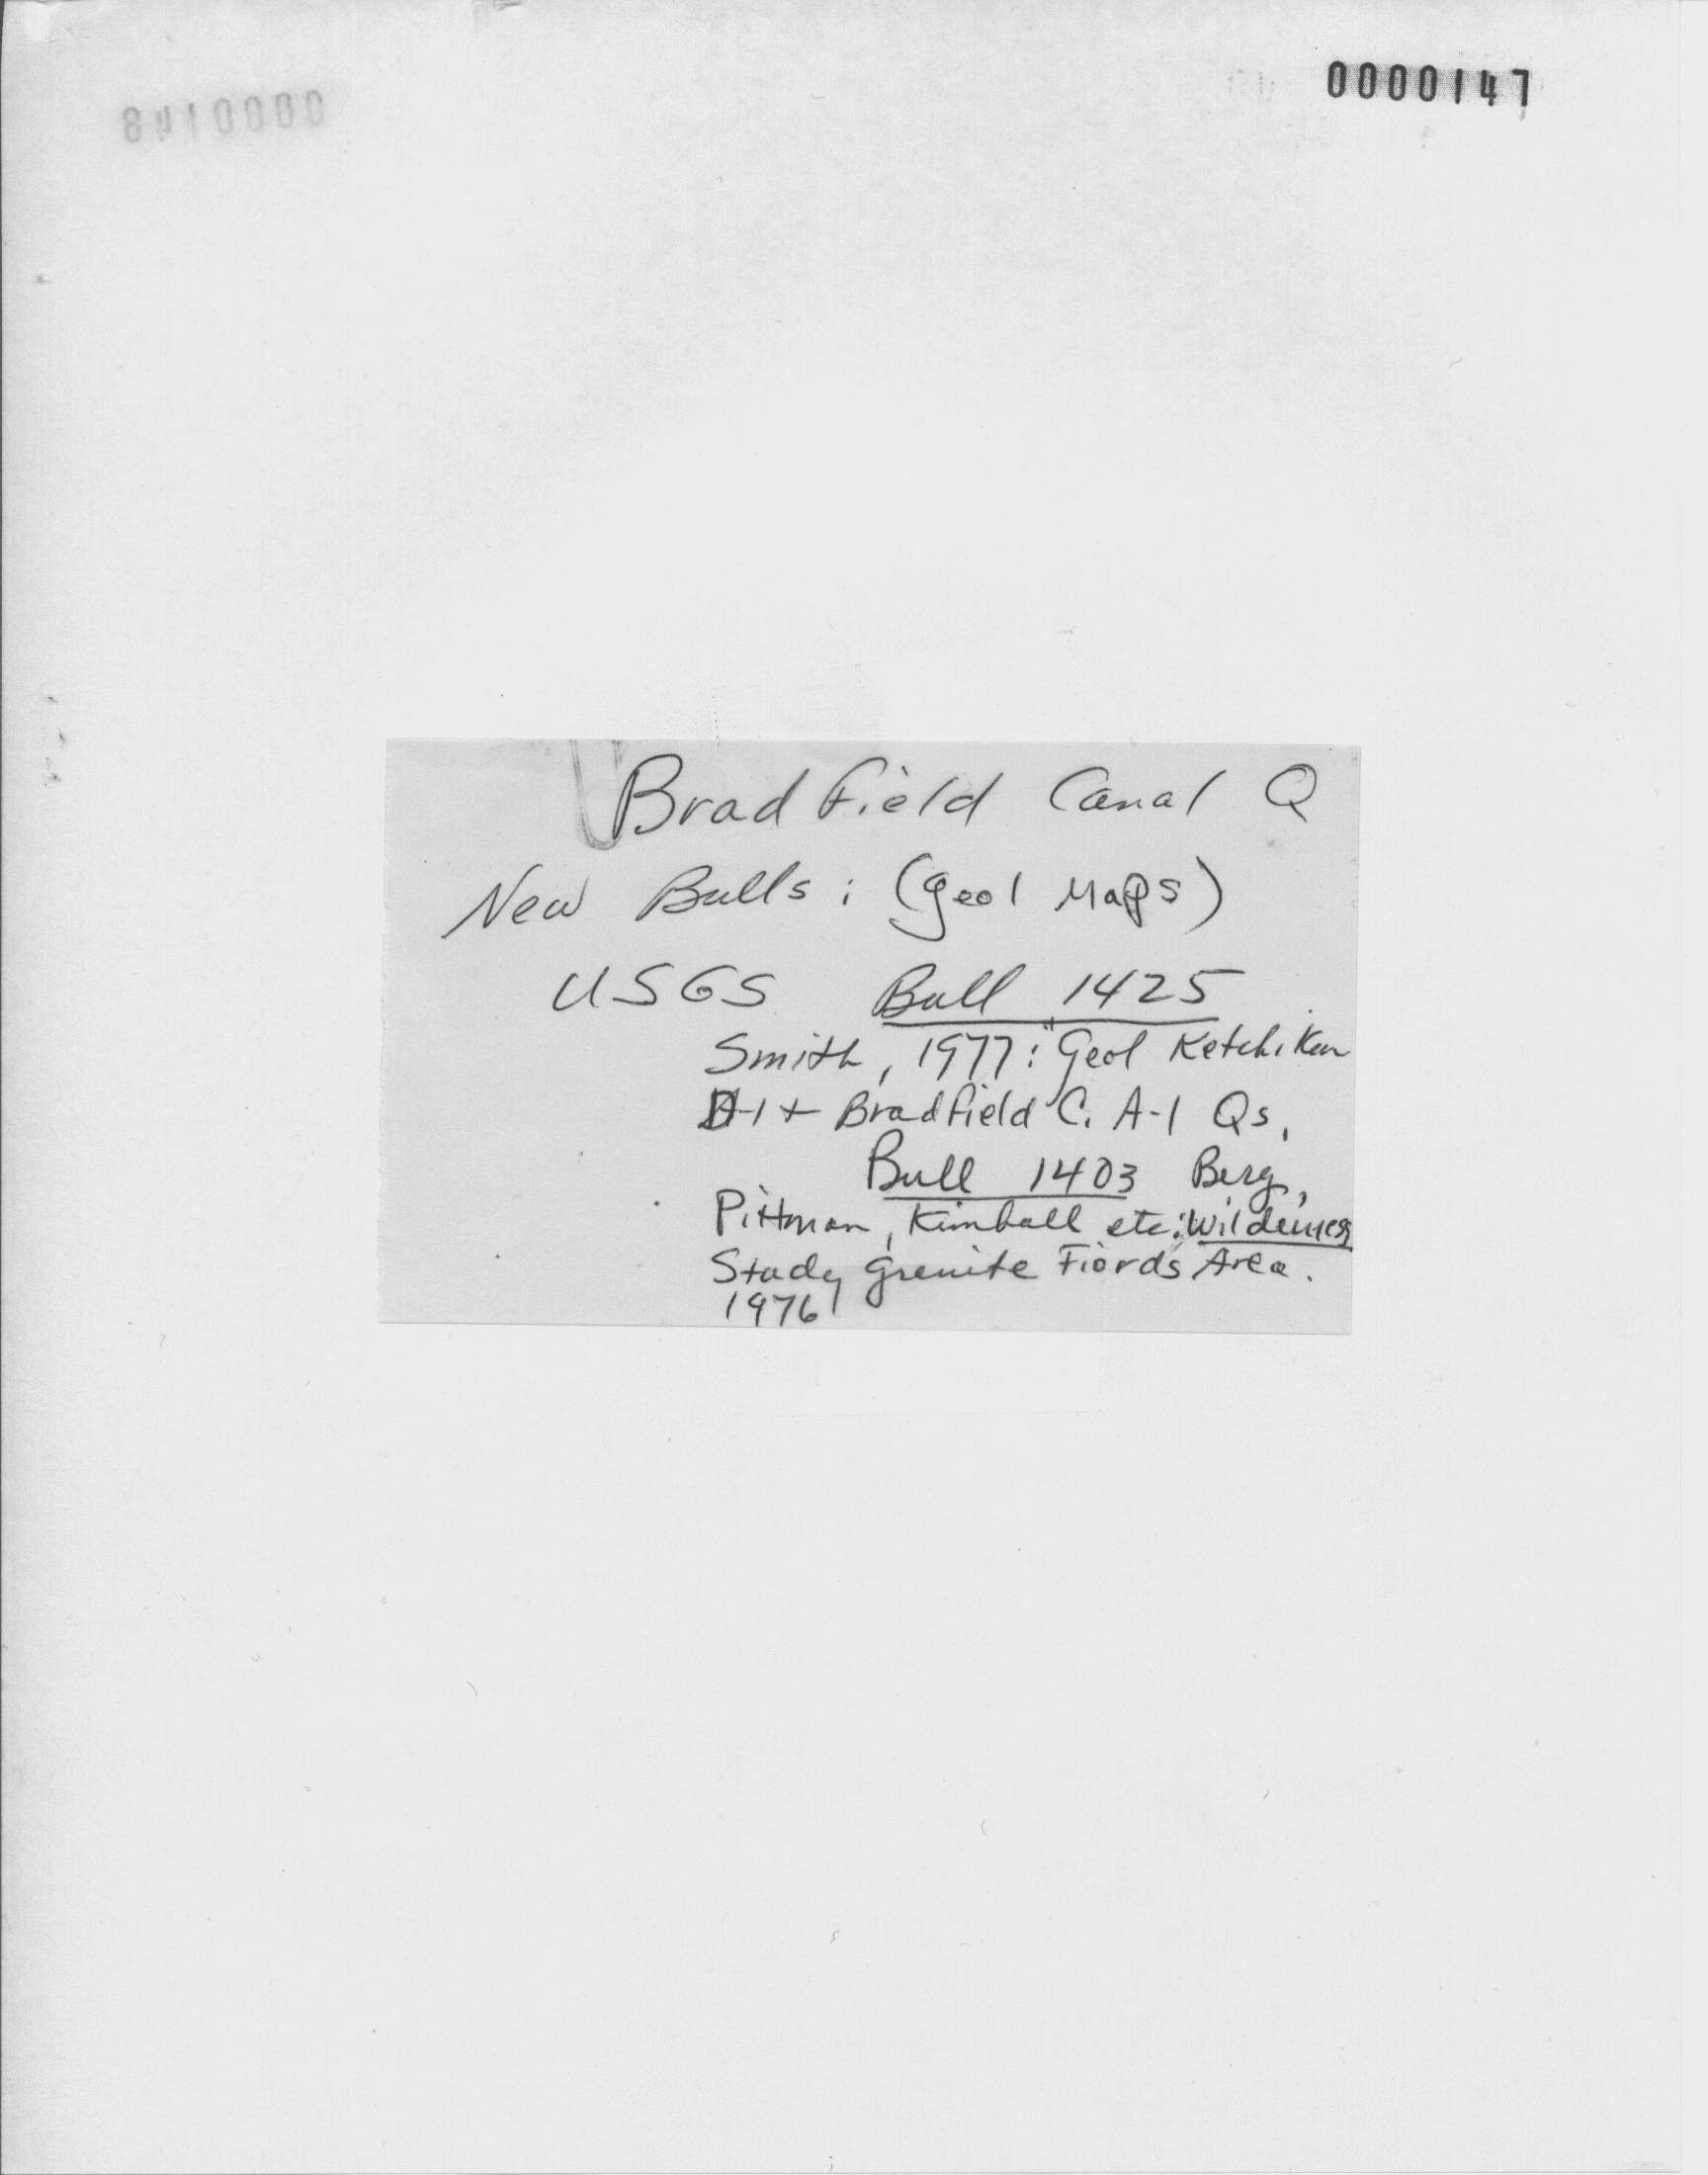 0000147
0000148
Bradfield Canal Q
New Bulls: (geol Maps)
USGS Bull 1425
Smith, 1977: "Geol Ketchikan
D-1 + Bradfield C. A-1 Qs,
Bull 1403 Berg,
Pittman, Kimball etc: Wilderness
Study Granite Fiords Area.
1976